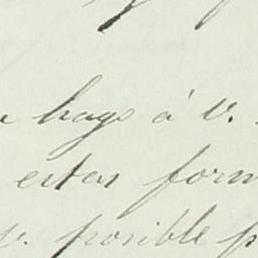 hays á V.
estas form
V. posible p